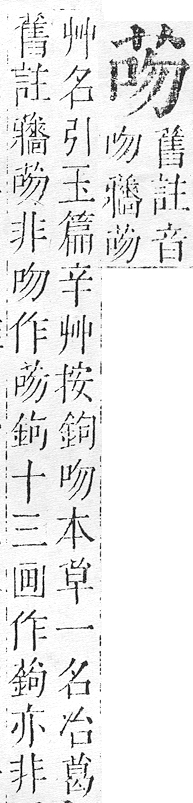 舊註音
吻
艸名引玉篇辛艸按鉤吻本草一名冶葛
舊註非吻作鉤十三画作亦非